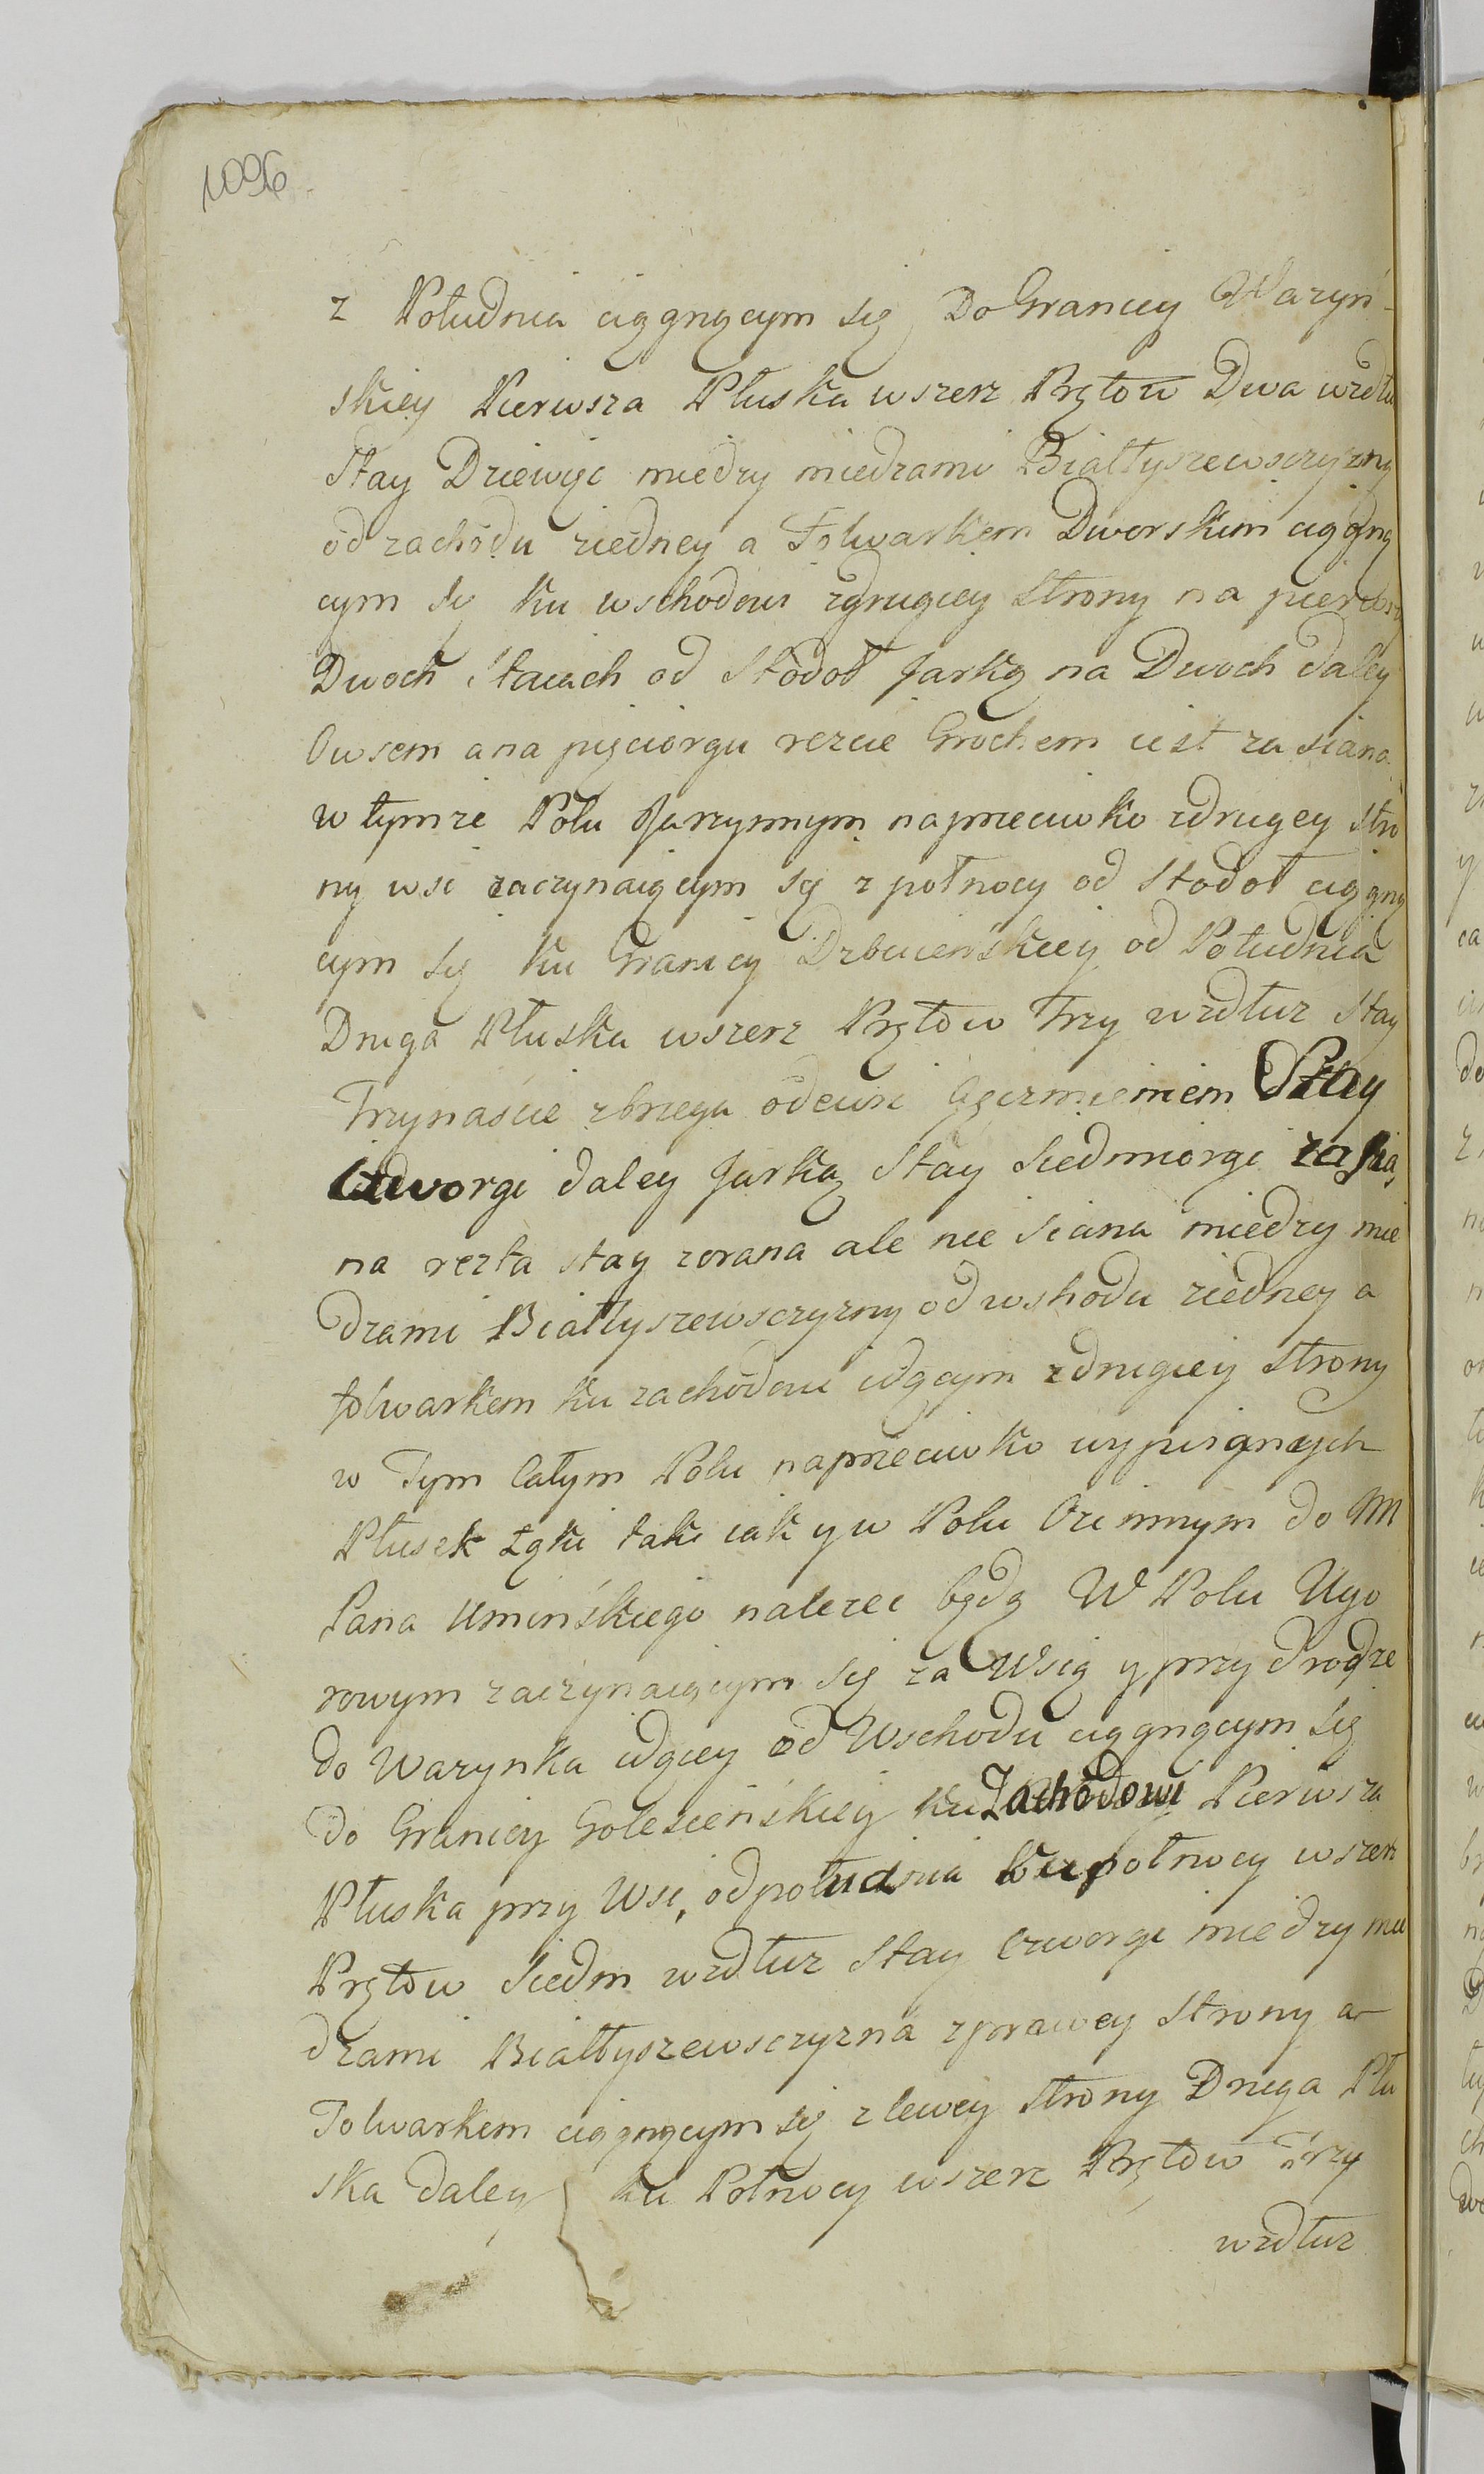 1096
z Południa ciągnącym się Do Granicy Waryń-
skiey Pierwsza Płuska wszerz Prętow Dwa wzdłu
Stay Dziewięc miedzy miedzami Białłyszewsczyzny
od zachodu ziedney a Folwarkiem Dworskim ciągną
cym się ku wschodowi zdrugiey Strony na pierwszy
Dwoch Staiach od Stodoł Jarką na Dwoch daley
Owsem a na pięciorgu rezcie Grochem iest zasiana.
w tymze Polu Jarzynnym naprzeciwko zdrugey Stro
ny wsi zaczynaiącym się z połnocy od Stodoł ciągną
cym się ku Granicy od Południa
Druga Płuska wszerz Prętow Trzy wzdłuz Stay
Trzynascie zbrzegu odewsi Ięczmieniem Stay
Czworgi daley Jarką Stay Siedmiorgi zasia
na rezta stay zorana ale nie siana miedzy mie
dzami Białłyszewsczyzny od wshodu ziedney a
folwarkem ku zachodowi idącym zdrugiey Strony
w Tym Całym Polu naprzeciwko wypisanych
Płusek Łąki taki iak y w Polu Ozimnym do M
Pana Uminskiego nalezec będą W Polu Ugo
rowym zaczynaiącym się za Wsią y przy drodze
do Warynka idącey od Wschodu ciągnącym się
do Granicy Golesieńskiey ku Zachodowi Pierwsza
Płuska przy Wsi, od południa ku połnocy wszerz
Prętow Siedm wzdłuz Stay czworgi miedzy mie
dzami Białłyszewsczyzna zprawey Strony a
Folwarkem ciągnącym się z lewey Strony Druga Płu
ska daley ku Połnocy wszerz Prętow Trzy
wzdłuz